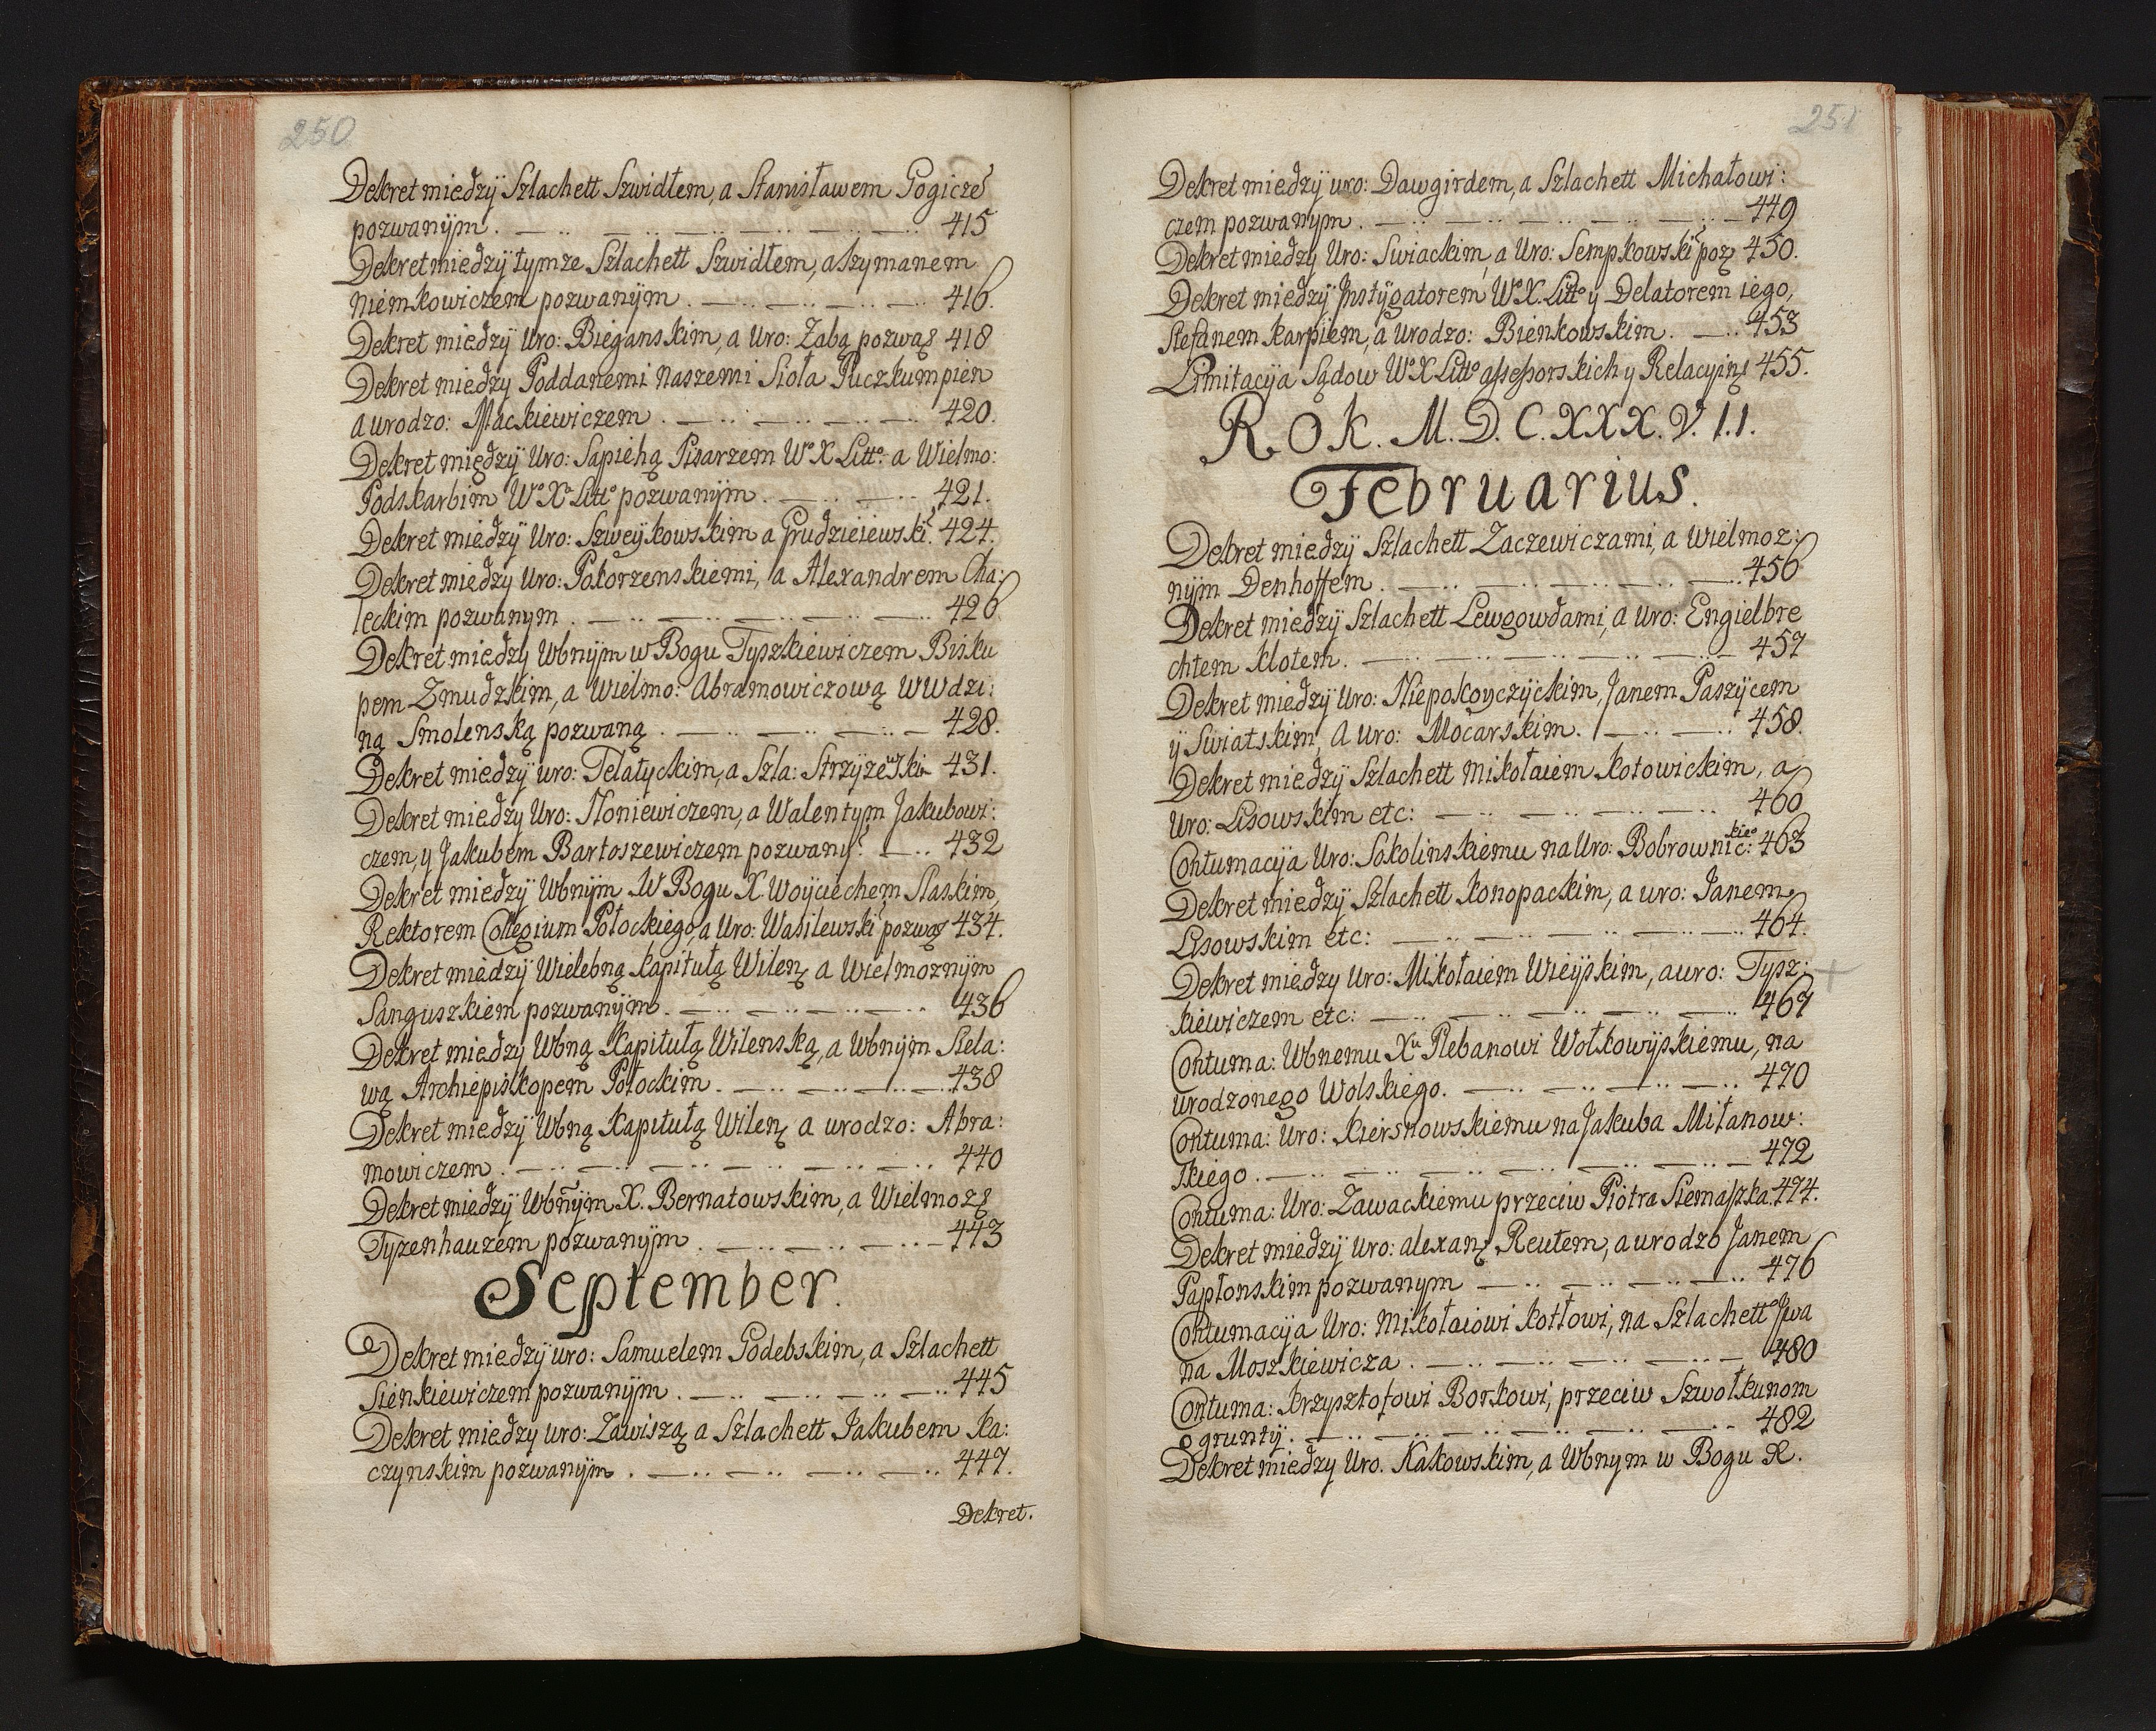 250
Dekret między Szlachett Szwidłem, a Stanisławem Gogicze
pozwanÿm . 415
Dekret miedzÿ tymze Szlachett Szwidłem, a Szymanem
Niemkowiczem pozwanÿm . 416.
Dekret miedzÿ Uro: Bieganskim, a Uro: Zabą pozwaʒ 418
Dekret miedzy Poddanemi naszemi Sioła Puczkumpien
a urodzo: Mackiewiczem . 420.
Dekret między Uro: Sapiehą Pisarzem Wº X Littº a Wielmo:
Podskarbim Wº Xª Littº pozwanÿm . 421.
Dekret miedzÿ Uro: Szweykowskim a Grudzieiewski. 424.
Dekret miedzÿ Uro: Pokorzenskiemi, a Alexandrem Cha:
leckim pozwanym . 426
Dekret miedzy Wbnÿm w Bogu Tyszkiewiczem Bisku
pem Zmudzkim, a Wielmo: Abramowiczową WWdzi:
ną Smolenską pozwaną . 428.
Dekret miedzÿ uro: Telatyckim, a Szla: Strzyżewski 431.
Dekret miedzy Uro: Noniewiczem, a Walentym Jakubowi:
czem, y Jakubem Bartoszewiczem pozwany. 432
Dekret miedzÿ Wbnÿm W Bogu X. Woyciechem Slaskim,
Rektorem Collegium Połockiego, a Uro: Wasilewski pozwaʒ 434.
Dekret miedzÿ Wielebną kapitułą Wilenʒ a Wielmoznÿm
Sanguszkiem pozwanÿm . 436
Dekret miedzy Wbną Kapitułą Wilenską, a Wbnÿm Siela:
wą Archiepiskopem Połockim . 438
Dekret miedzÿ Wbną Kapitułą Wilenʒ a urodzo: Abra:
mowiczem . 440
Dekret miedzÿ Wbnÿm X. Bernatowskim, a Wielmozʒ
Tyzenhauzem pozwanÿm . 443
September.
Dekret miedzÿ uro: Samuelem Godebskim, a Szlachett
Sienkiewiczem pozwanÿm . 445
Dekret miedzy uro: Zawiszą a Szlachett Jakubem Ka:
czynskim pozwanÿm . 447.
Dekret.
251
Dekret miedzÿ uro: Dawgirdem, a Szlachett Michałowi:
czem pozwanym . 449
Dekret miedzy Uro: Swiackim, a Uro: Sempkowski poz 450.
Dekret miedzÿ Instÿgatorem Wº X. Littº y Delatorem iego,
Stefanem Karpiem, a Urodzo: Bienkowskim . 453
Limitacÿa Sądow Wº X Littº assessorskich y Relacyinʒ 455.
ROK. M.D.C.XXX.V.I.I.
Februarius.
Dekret miedzÿ Szlachett Zaczewiczami, a Wielmoz:
nÿm Denhoffem . 456
Dekret miedzÿ Szlachett Lewgowdami, a Uro: Engielbre
chtem Klotem . 457
Dekret miedzÿ Uro: Niepokoyczÿckim, Janem Paszÿcem
ÿ Swiatskim, A Uro: Mocarskim. 458.
Dekret miedzÿ Szlachett Mikołaiem Kotowickim, a
Uro: Lisowskim etc: 460
Contumacÿa Uro: Sokolinskiemu na Uro: Bobrownic:kieº 463
Dekret miedzÿ Szlachett Konopackim, a uro: Janem
Lisowskim etc: 464.
Dekret miedzy Uro: Mikołaiem Wieÿskim, a uro: Tysz: +
kiewiczem etc: 467
Contuma: Wbnemu Xu Plebanowi Wołkowÿskiemu, na
urodzonego Wolskiego. 470
Contuma: Uro: Kiersnowskiemu na Jakuba Miłanow:
skiego . 472
Contuma: Uro: Zawackiemu przeciw Piotra Siemaszka. 474.
Dekret miedzÿ Uro: alexanʒ Reutem, a urodzo Janem
Papłonskim pozwanym 476
Contumacÿa Uro: Mikołaiowi Kotłowi, na Szlachettº Jwa
na Moszkiewicza . 480
Contuma: Krzysztofowi Borkowi, przeciw Szwołkunom
o gruntÿ. 482
Dekret miedzy Uro. Kakowskim, a Wbnym w Bogu X.